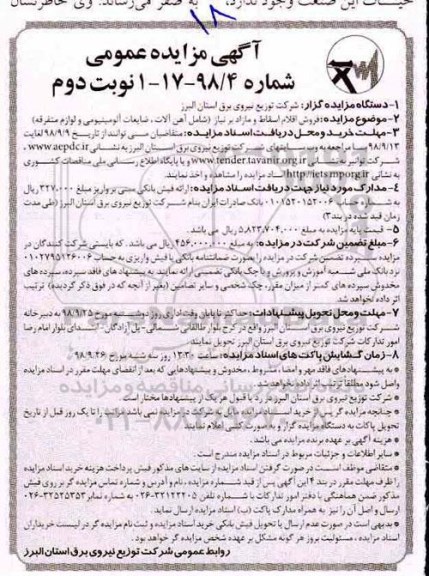 حیات این صنعت وجود ندارد، به صفر می‌رساند. وی خاطرنشان
۱۸
آگهی مزایده عمومی
شماره ۹۸/۴-۱۷-۱ نوبت دوم
۱-دستگاه مزایده گزار: شرکت توزیع نیروی برق استان البرز
۲-موضوع مزایده: فروش اقلام اسقاط و مازاد بر نیاز (شامل آهن آلات، ضایعات آلومینیومی و لوازم متفرقه)
۳-مهلت خرید و محل دریافت اسناد مزایده: متقاضیان می توانند از تاریخ ۹۸/۹/۹ لغایت
۹۸/۹/۱۳ با مراجعه به وب شرکت توزیع نیروی برق استان البرز به نشانی www.aepdc.ir،
شرکت توانیر به نشانی www.tender.tavanir.org.ir و یا پایگاه اطلاع رسانی ملی مناقصات کشوری
به نشانی http://iets.mporg.ir اسناد مزایده را مشاهده و اخذ نمایند.
۴-مدارک مورد نیاز جهت دریافت اسناد مزایده: ارائه فیش بانکی مبنی بر واریز مبلغ ۳۲۷,۰۰۰ ریال
به شماره حساب ۰۱۰۱۵۲۰۱۵۲۰۰۶ بانک صادرات ایران بنام شرکت توزیع نیروی برق استان البرز (طی مدت
زمان قید شده در بند ۳)
۵-قیمت پایه مزایده به مبلغ ۵,۸۲۳,۷۰۴,۰۰۰ ریال می باشد.
۶-مبلغ تضمین شرکت در مزایده: به مبلغ ۴۵۶,۰۰۰,۰۰۰ ریال می باشد. که بایستی شرکت کنندگان در
مزایده سپرده تضمین شرکت در مزایده را بصورت ضمانتنامه بانکی یا فیش واریزی به حساب ۰۱۰۲۷۹۵۱۲۶۰۰۶
نزد بانک ملی شعبه آموزش و پرورش و یا چک بانکی تضمینی ارائه نمایند به پیشنهاد های فاقد سپرده، سپرده های
مخدوش سپرده های کمتر از میزان مقرر، چک شخصی و سایر تضامین (بغیر از آنچه که در فوق ذکر گردیده) ترتیب
اثر داده نخواهد شد.
۷-مهلت و محل تحویل پیشنهادات: حداکثر تا پایان وقت اداری روز دوشنبه مورخ ۹۸/۹/۲۵ به دبیرخانه
شرکت توزیع نیروی برق استان البرز واقع در کرج بلوار طالقانی شمالی-پل آزادگان بلوار امام رضا
امور تدارکات شرکت توزیع نیروی برق استان البرز تحویل نمایند.
۸-زمان گشایش پاکت های اسناد مزایده: ساعت ۱۳:۳۰ روز سه شنبه مورخ ۹۸/۹/۲۶
* به پیشنهادهای فاقد مهر و امضاء، مشروط، مخدوش و پیشنهادهایی که بعد از انقضای مهلت مقرر در اسناد مزایده
واصل شود مطلقا ترتیب اثر داده نخواهد شد.
* شرکت توزیع نیروی برق استان البرز در رد یا قبول هر یک از پیشنهادها مختار است.
* چنانچه مزایده گر پس از خرید اسناد در مزایده نمی باشد مراتب را تا یک روز قبل از تاریخ
تحویل پاکات به دستگاه مزایده گزار به صورت کتبی اعلام نماید.
* هزینه آگهی بر عهده برنده مزایده می باشد.
* سایر اطلاعات و جزئیات مربوط در اسناد مزایده مندرج است.
* متقاضی موظف است در صورت گرفتن اسناد مزایده از سایت های مذکور فیش پرداخت هزینه خرید اسناد مزایده
را ظرف مهلت مقرر در بند ۴ این آگهی پس از قید شماره مزایده، نام و آدرس و شماره تماس مزایده گر بر روی فیش
مذکور ضمن هماهنگی با دفتر امور تدارکات با شماره تلفن ۳۲۱۲۲۲۰۵-۰۲۶ به شماره نمابر ۳۲۵۲۵۳۵۳-۰۲۶
ارسال و اصل آن را نیز به همراه مدارک پاکت (ب) اسناد مزایده ارسال نماید.
* بدیهی است در صورت عدم ارسال یا تحویل فیش بانکی خرید اسناد مزایده و ثبت نام مزایده گر در لیست خریداران
اسناد مزایده، مسئولیت بروز هر گونه مشکل بر عهده شخص مزایده گر خواهد بود.
روابط عمومی شرکت توزیع نیروی برق استان البرز